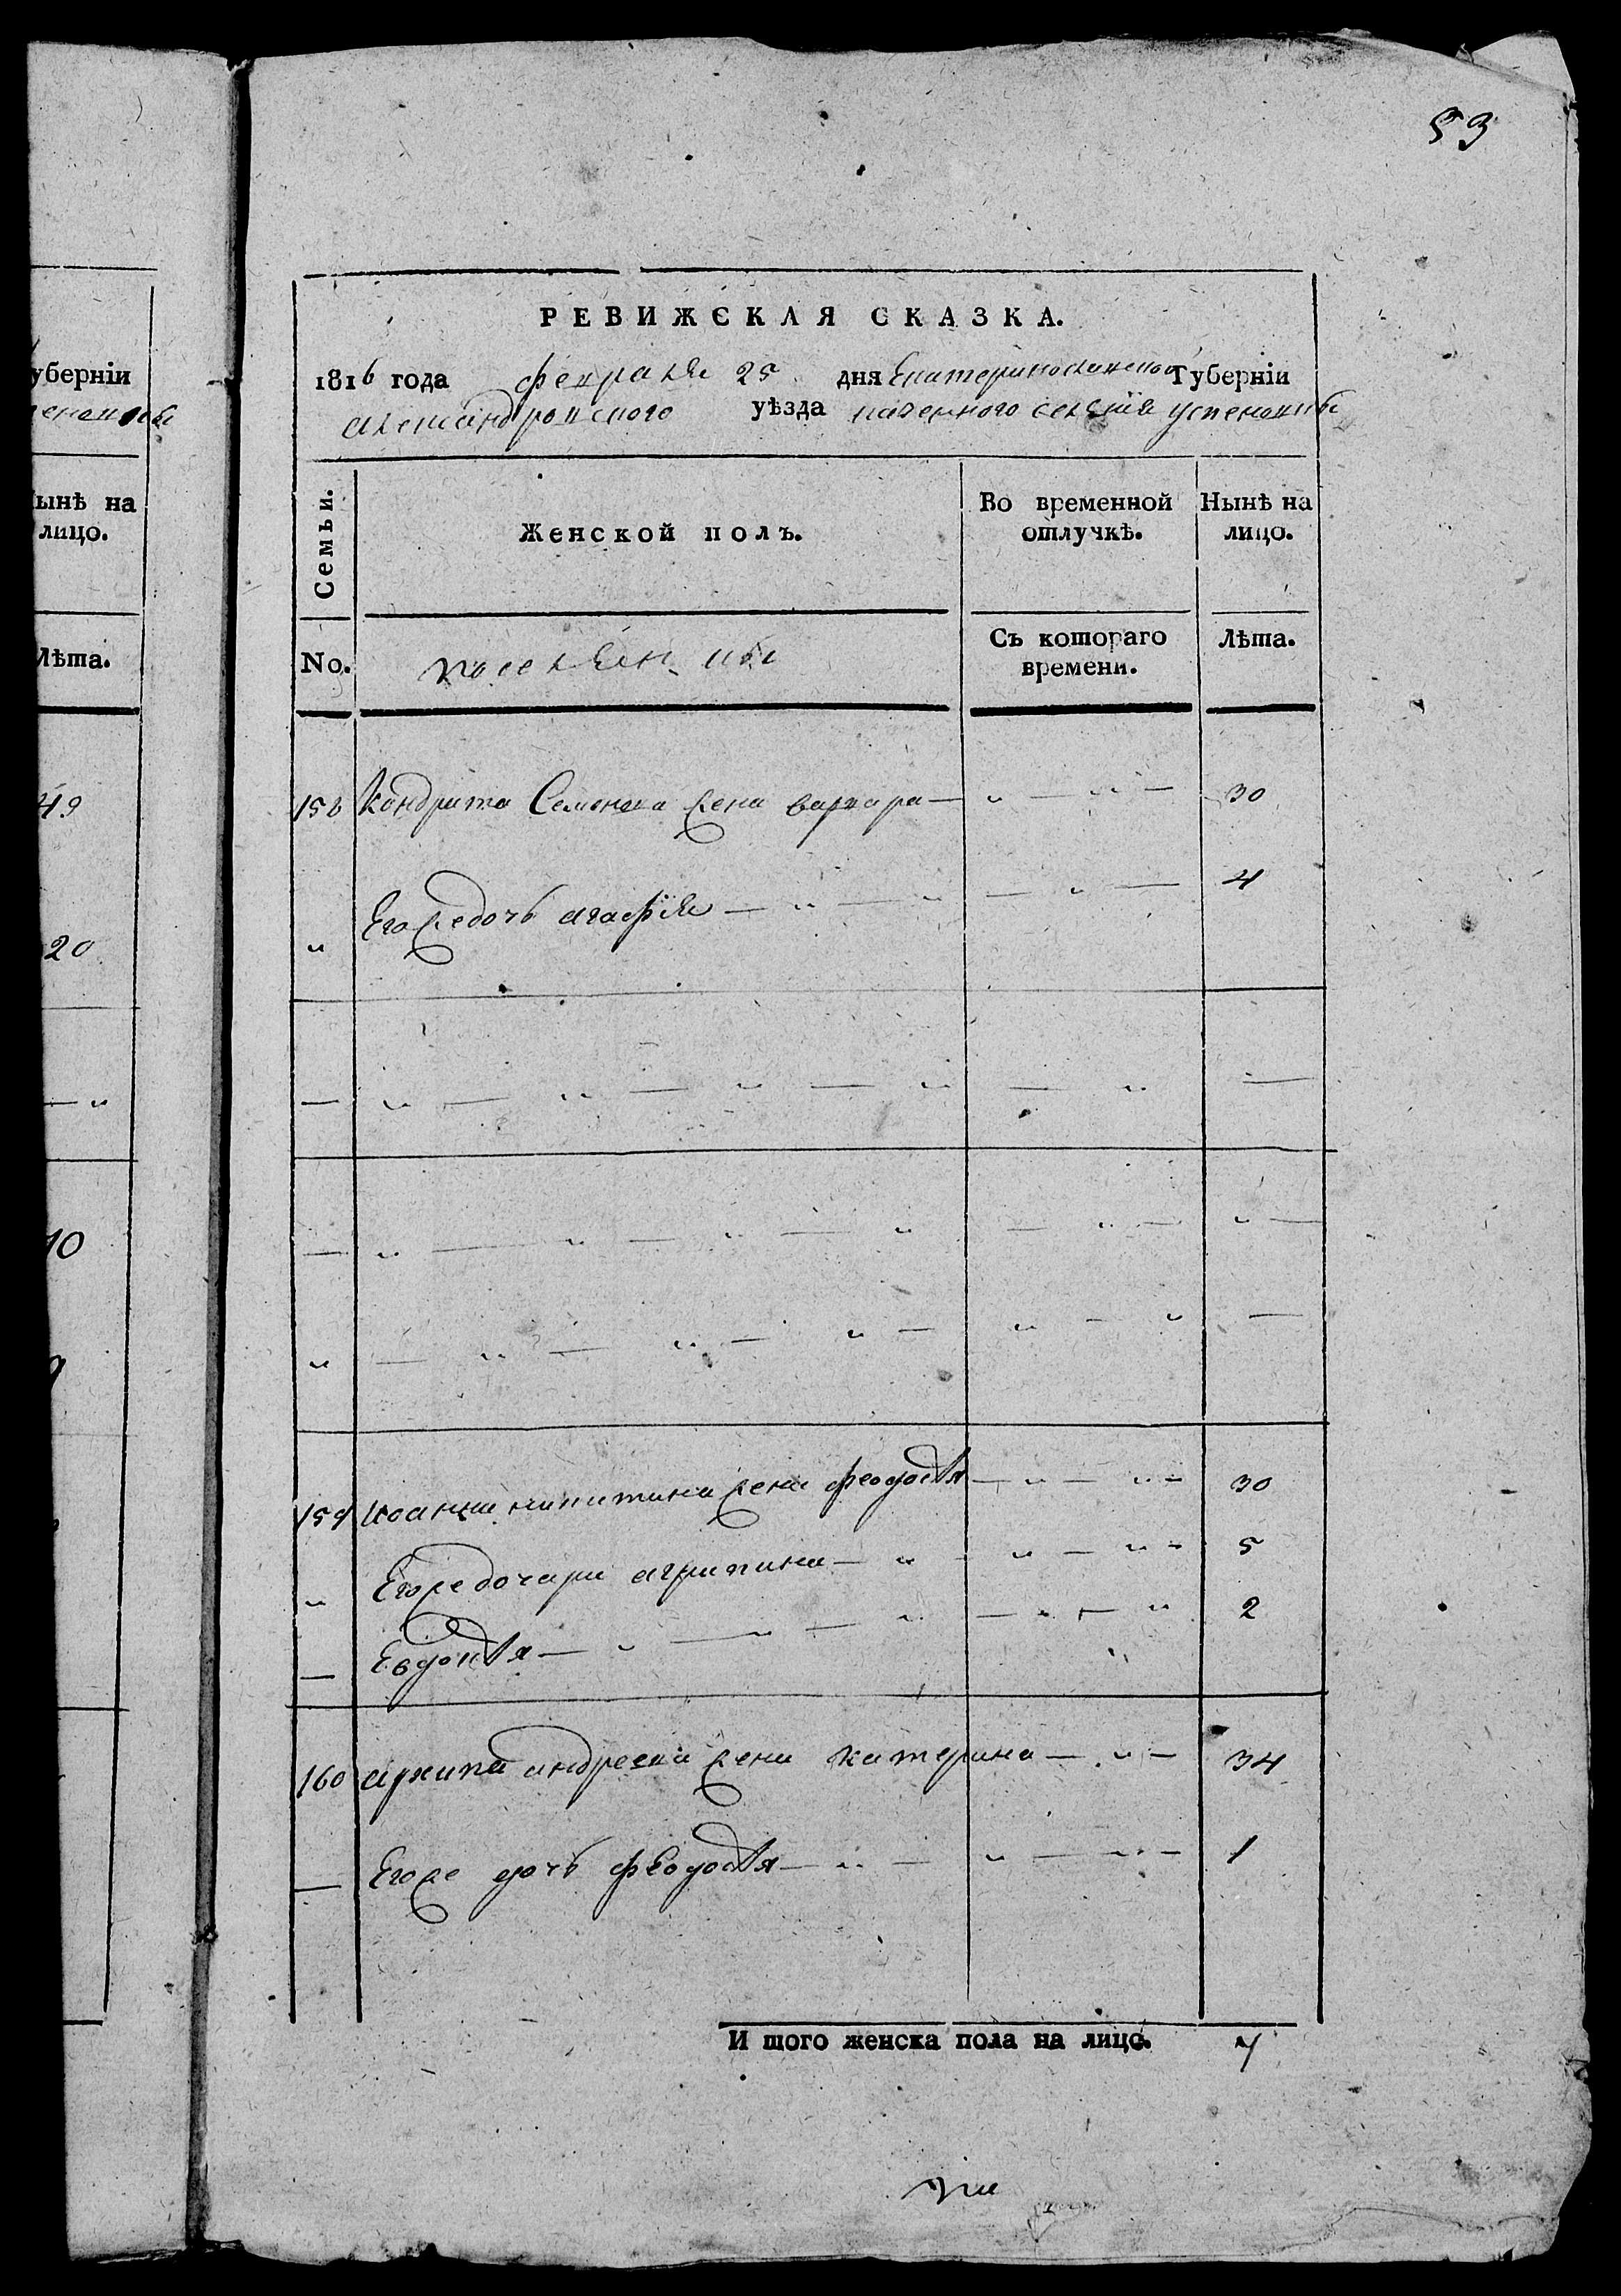 53
РЕВИЖСКАЯ СКАЗКА.
1816 года февраля 25 дня Екатеринославской Губерніи
александровского уѣзда казенного селенія успеновки
Семьи.
Женской полъ.
Во временной отлучкѣ.
Ныне на лицо.
No.
поселян
Съ котораго времени.
Лѣта.
158 Кондрата Семенова жена варвара — „ — „ — 30
„ Его же дочь агафія — „ — „ — „ — 4
159 Иоанна никитина жена феодосія — „ — „ — 30
„ Его же дочери агрипина — „ „ — „ — 5
— Евдокія — „ — „ — „ — „ — „ 2
160 архипа андреева жена катерина — „ — 34
— Его же дочь феодосія — „ — „ — „ — 1
И того женска пола на лицо. 7
уберніи
ынѣ на
лицо.
Лѣта.
49
20
10